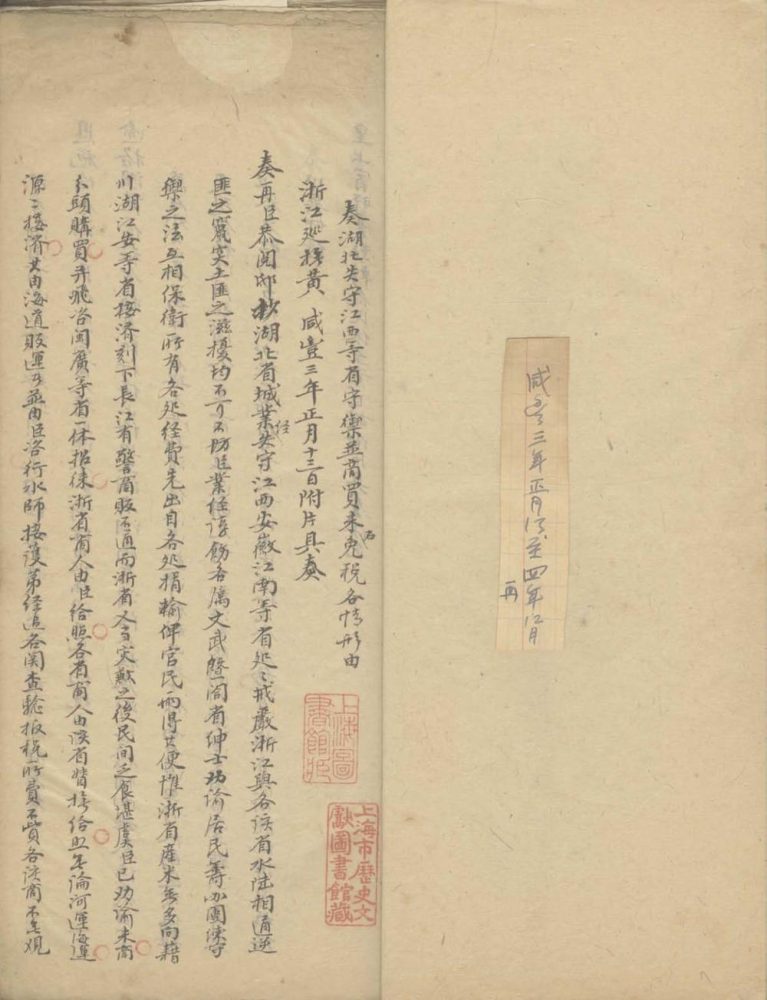 咸豐三年正月 至四年十二月
再
奏湖北失守江西等省守禦並商買米石免稅各情形由
浙江巡撫黃 咸豐三年正月十三日附片具奏
奏再臣恭閱邸抄湖北省城業經失守江西安徽江南等省処〻戒嚴浙江與各該省水陸相通逆
匪之竄突土匪之滋擾均不可不防臣業經諄飭各屬文武暨闔省紳士劝諭居民籌办團練守
禦之法互相保衛所有各処経費先出自各処捐輸俾官民両得其便惟浙省產米無多向藉
川湖江安等省接濟刻下長江有警商販不通而浙省又当灾歉之後民间乏食堪虞臣已劝諭米商
分頭購買并飛咨閩廣等省一体招徠浙省商人由臣給照各省商人由该省督撫給照無論河運海運
源〻接濟其由海道販運者並由臣咨行水師接護第経過各関查驗报税所費不貲各该商不無观
上海圖書館藏
上海市歷史文獻圖書館藏